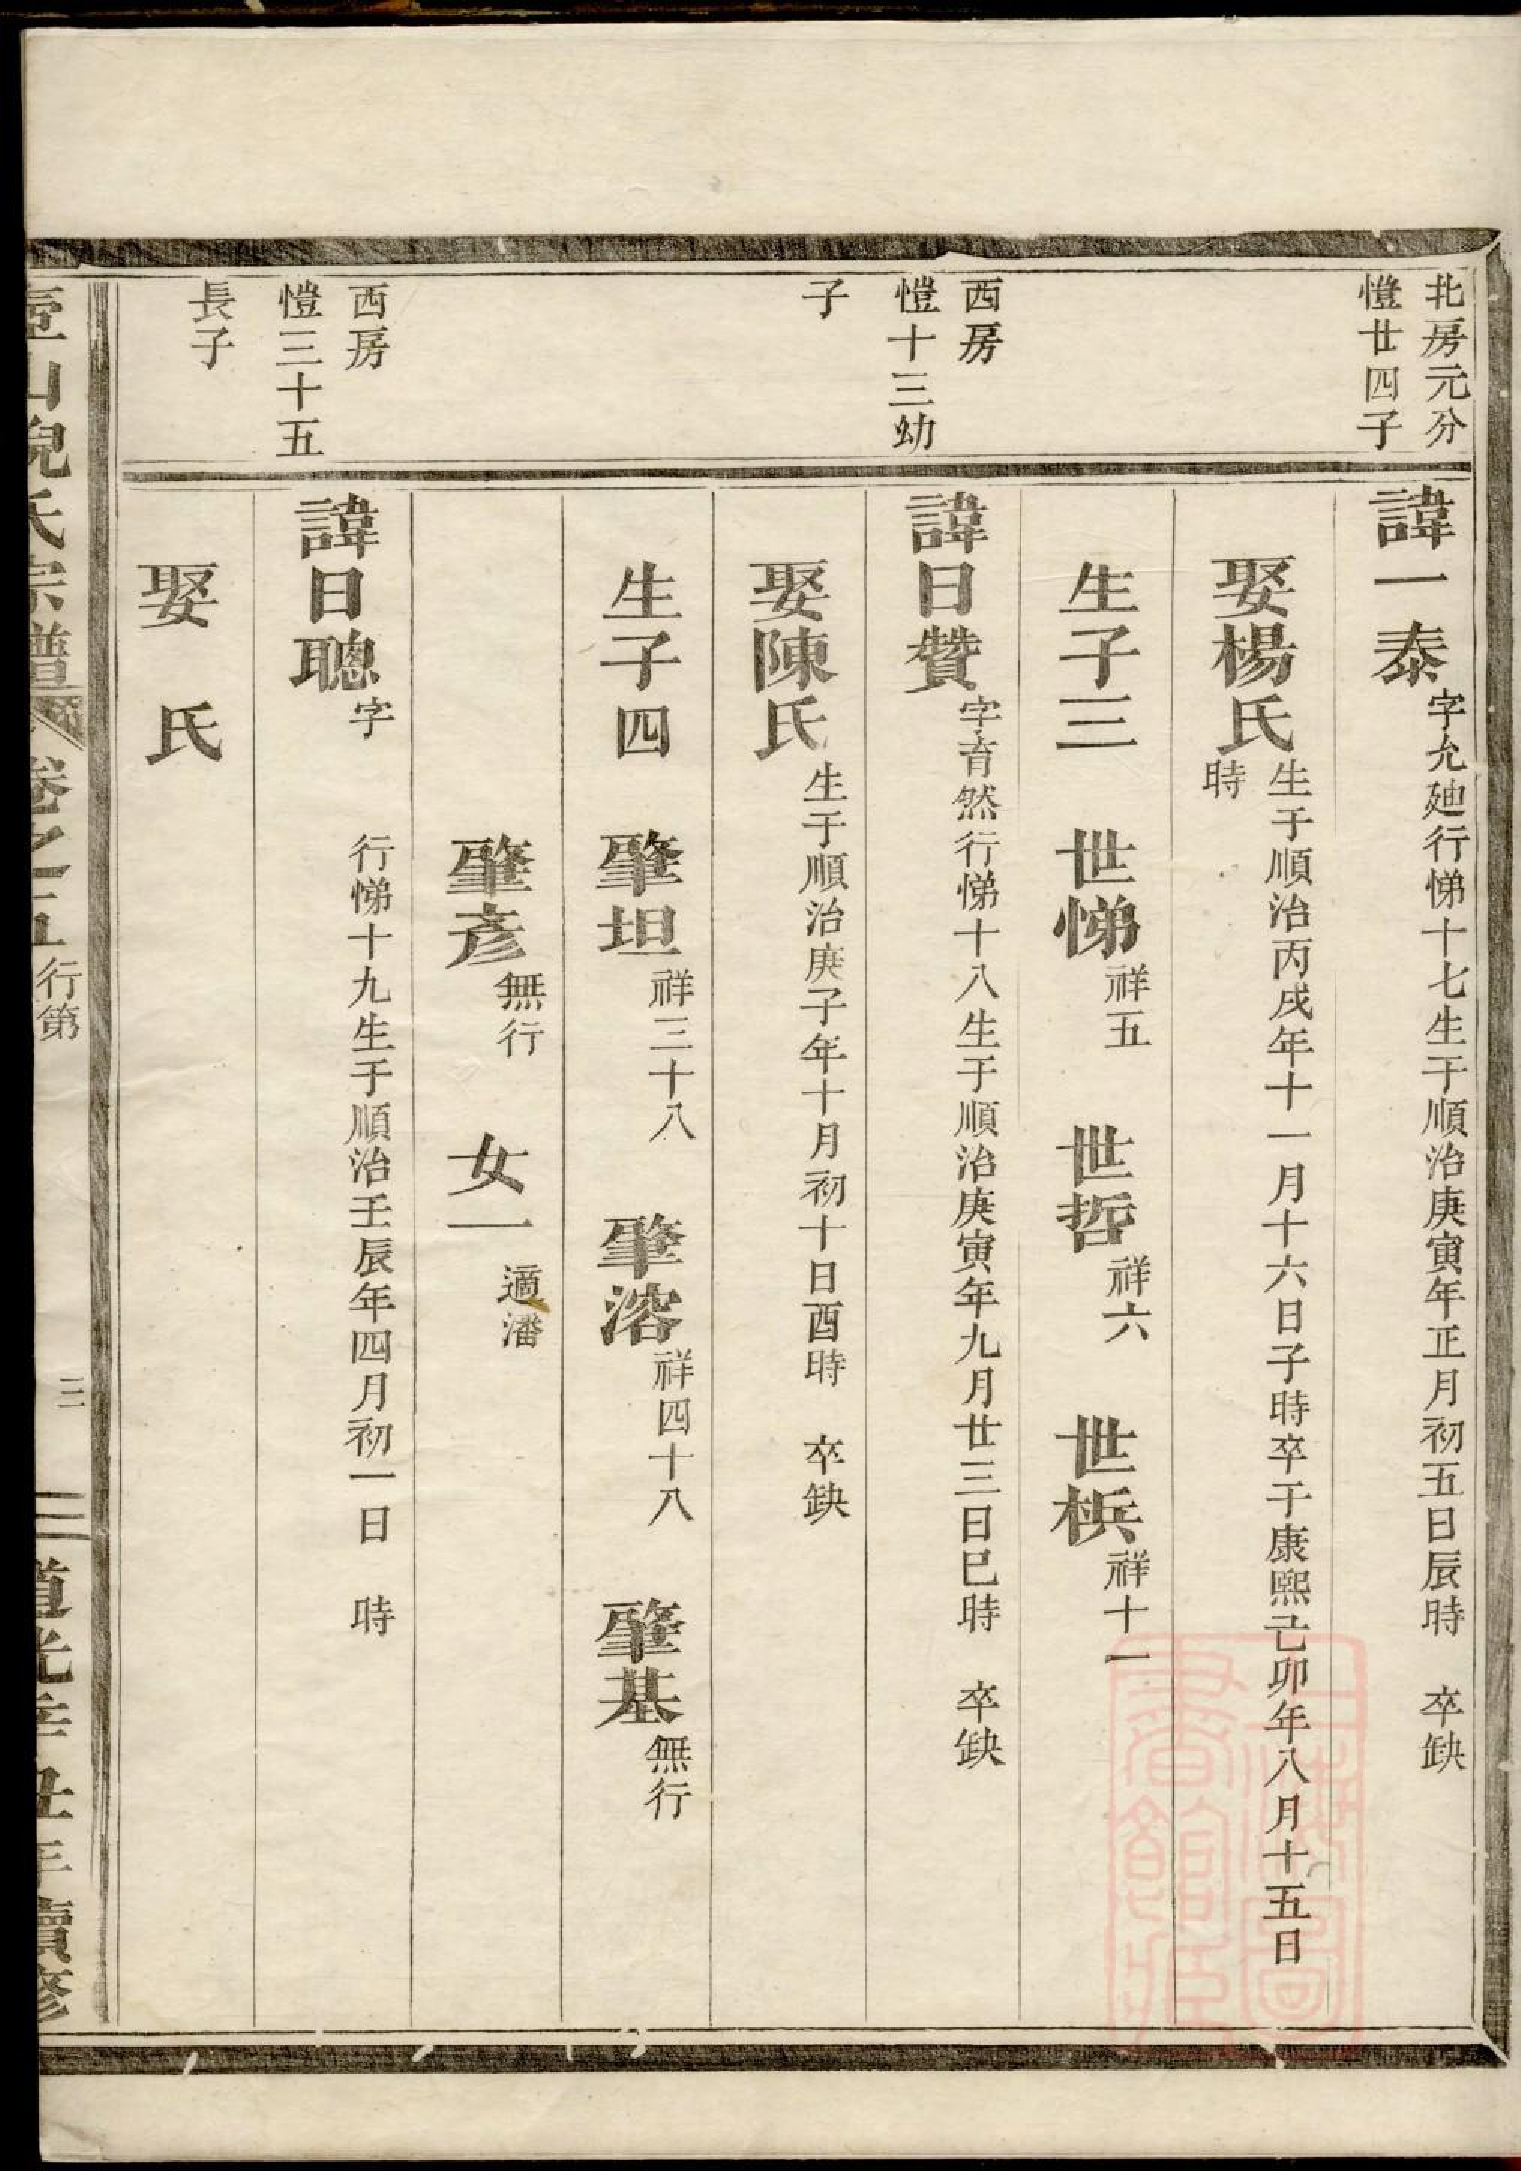 北房元分
愷廿四子
諱一泰 字允廸行悌十七生于順治庚寅年正月初五日辰時 卒缺
娶楊氏 生于順治丙戌年十一月十六日子時卒于康熙己卯年八月十五日
時
生子三 世悌 祥五 世哲 祥六 世梹 祥十一
西房
愷十三幼
子
諱日贊 字育然行悌十八生于順治庚寅年九月廿三日巳時 卒缺
娶陳氏 生于順治庚子年十月初十日酉時 卒缺
生子四 肇坦 祥三十八 肇溶 祥四十八 肇基 無行
肇彥 無行 女一 適潘
西房
愷三十五
長子
諱日聰 字 行悌十九生于順治壬辰年四月初一日 時
娶 氏
壺山倪氏宗譜 卷之五 行第 三 道光辛丑年續修
上海圖書館藏